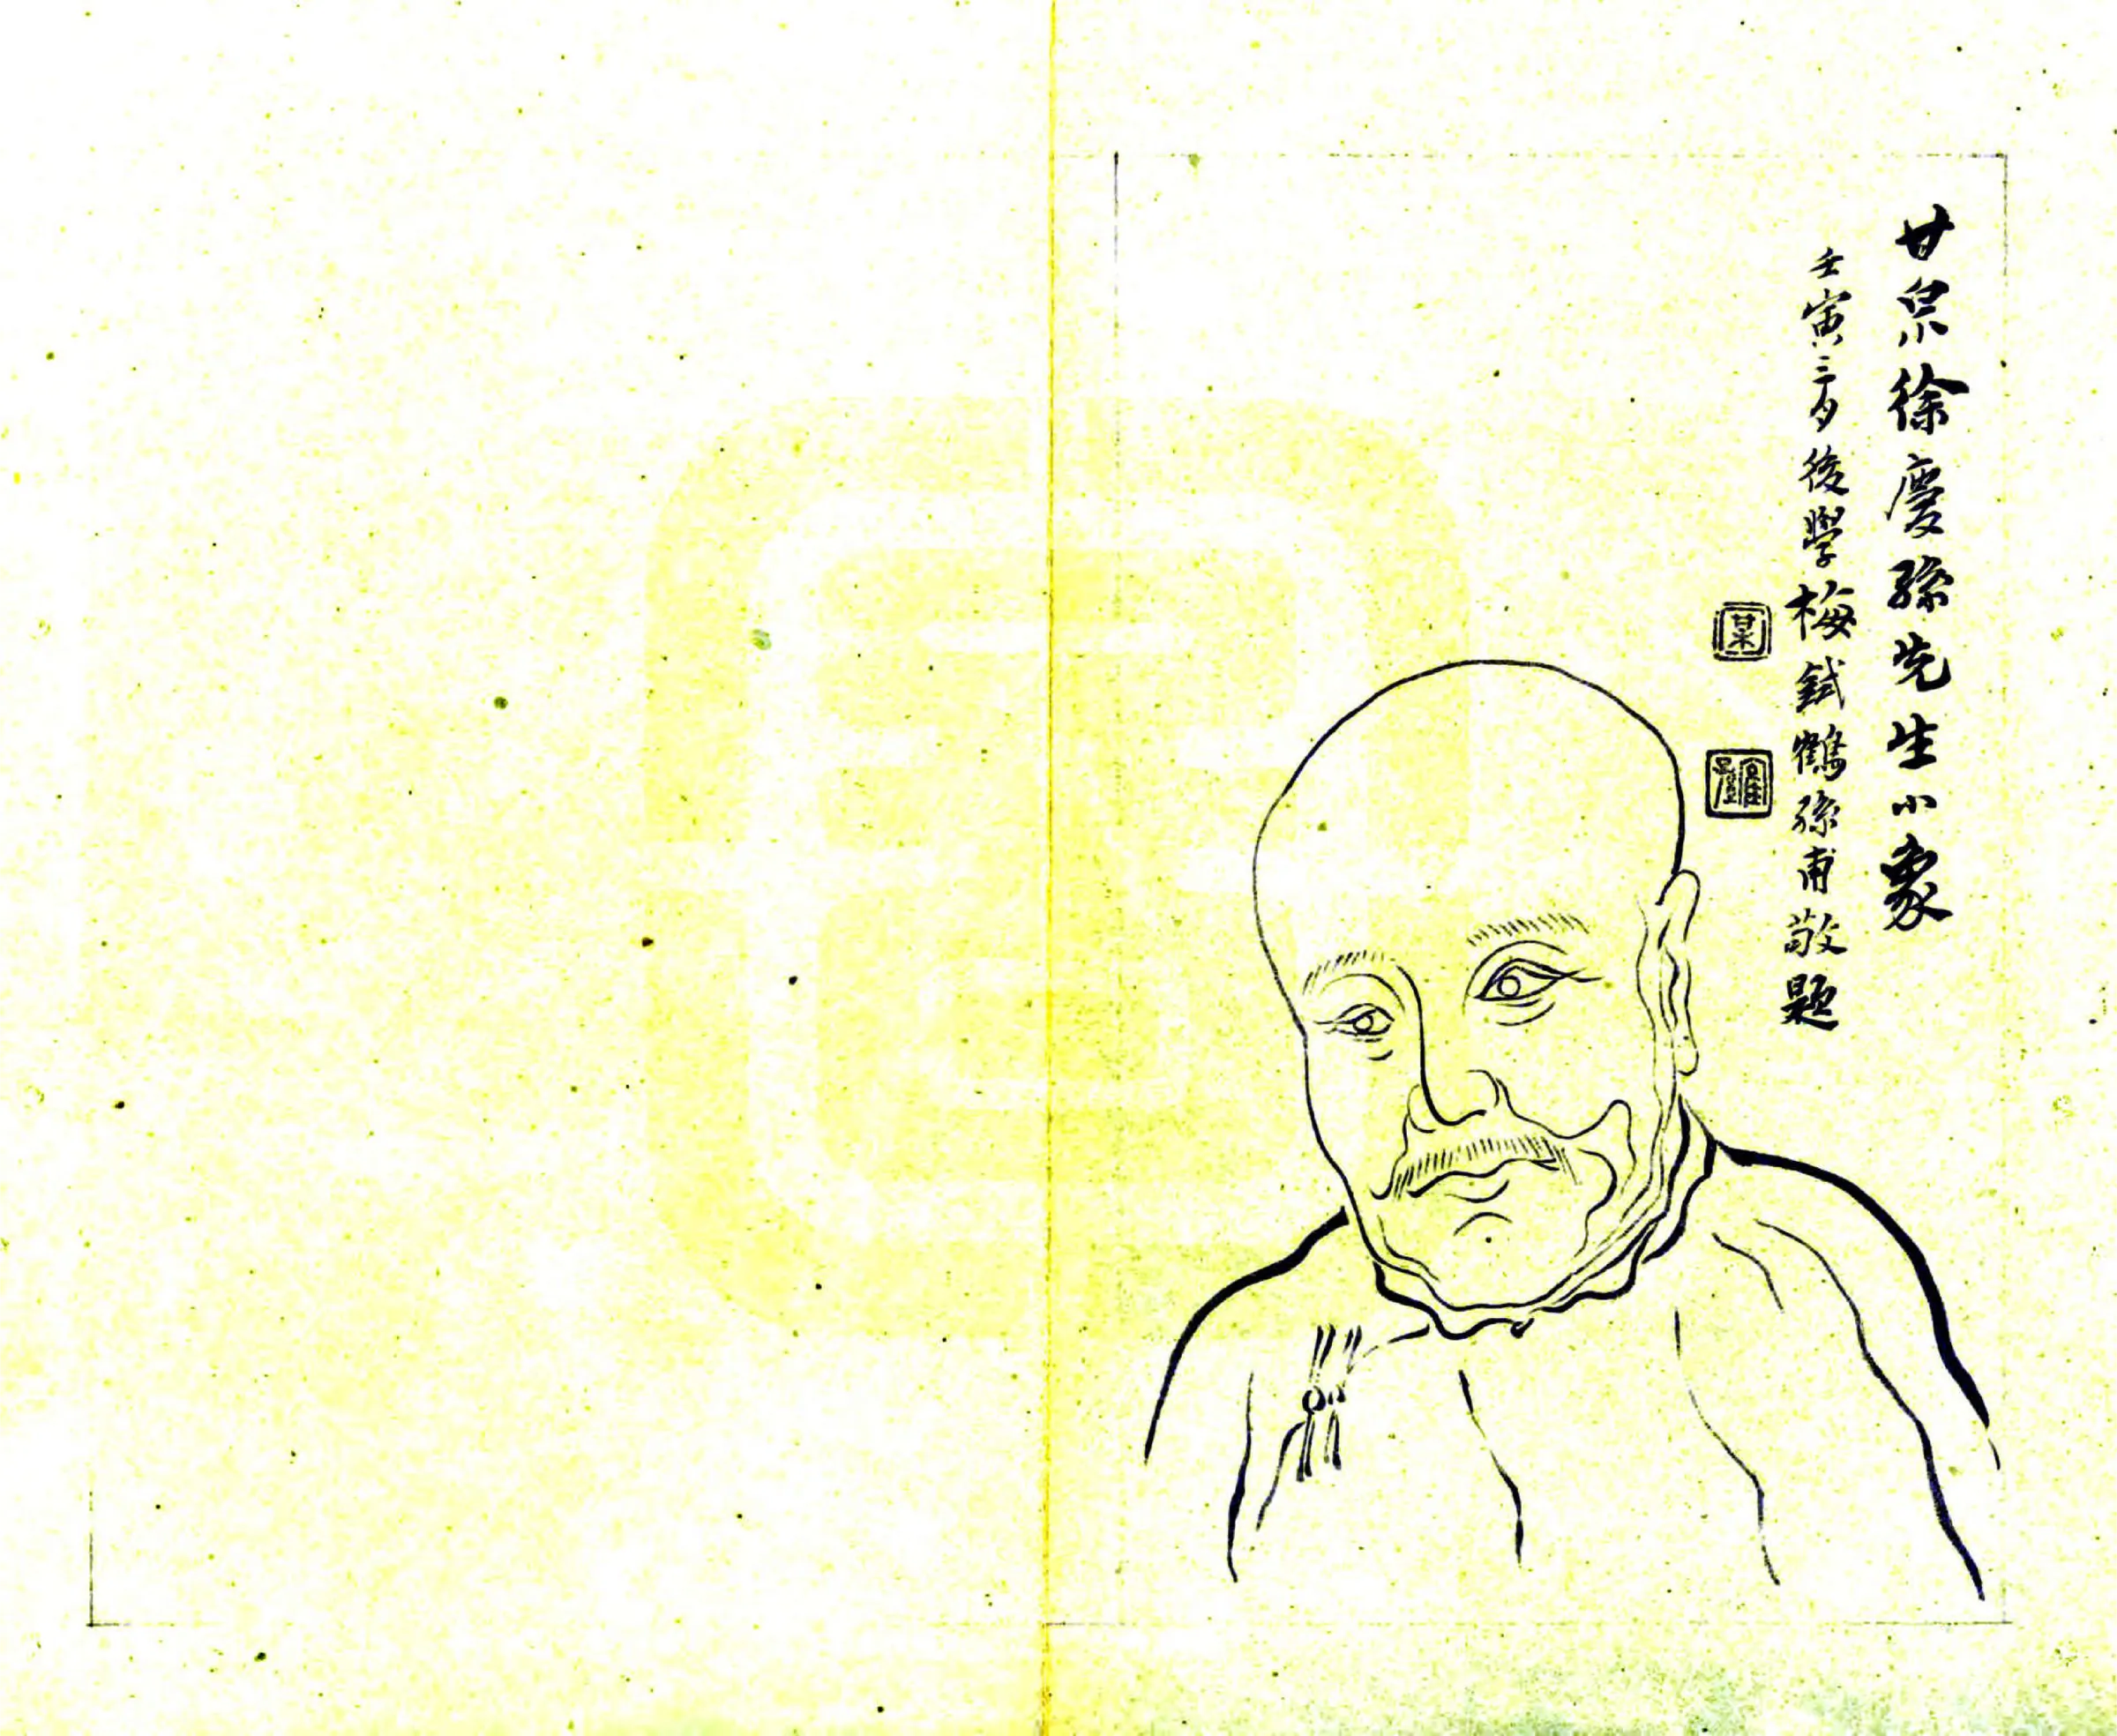 甘泉徐慶孫先生小象
壬寅三月後學梅鉽鶴孫甫敬題
某